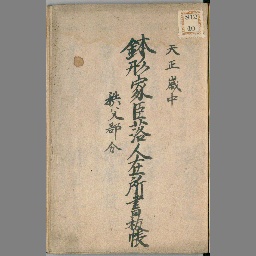 天正歳中
鉢形家臣落人在所書抜帳
秩父部分